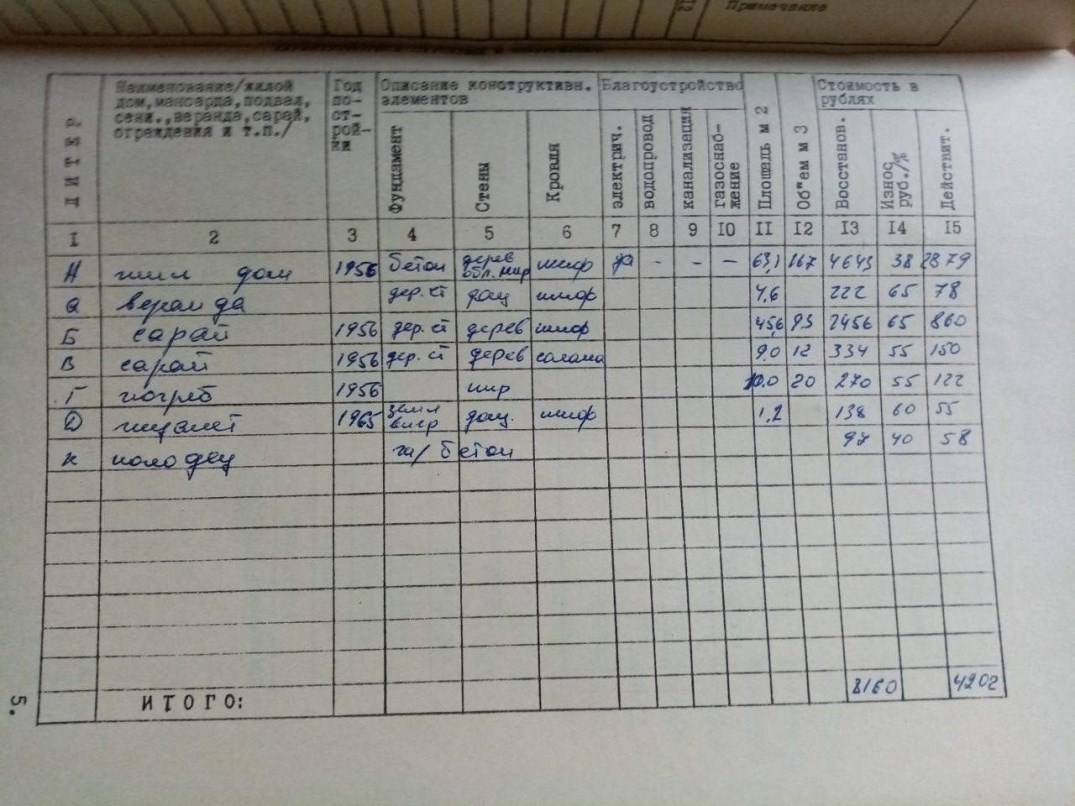 Примечание
ЛИТЕР
Наименование/жилой дом, мансарда, подвал, сени., веранда, сарай, ограждения и т.п./
Год по-ст-рой-ки
Описание конструктивн. элементов
Благоустройство
Площадь м 2
Об"ем м 3
Стоимость в рублях
Фундамент
Стены
Кровля
электрич.
водопровод
канализация
газоснаб-жение
Восстанов.
Износ руб./%
Действит.
I 2 3 4 5 6 7 8 9 IO II I2 I3 I4 I5
А жил дом 1956 бетон дерев обл. кир шиф да - - - 63,1 167 4643 38 2879
а веранда дер. ст дощ шиф 4,6 222 65 78
Б сарай 1956 дер. ст дерев шиф 45,6 93 2456 65 860
В сарай 1956 дер. ст дерев солома 9,0 12 334 55 150
Г погреб 1956 кир 10.0 20 270 55 122
Д туалет 1965 земл дощ. шиф 1,2 138 60 55
К колодец бетон 97 40 58
ИТОГО: 8160 4202
5.